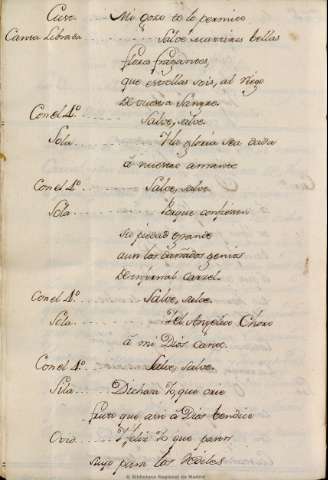 Cura .... Mi gozo te lo permite
Canta Librada .... Salve martires bellas
flores fragantes,
que estrellas sois, al riego
de vuestra Sangre.
Con el 4º .... Salve, salve.
Sola ..... Y la gloria sea dada
à nuestro amante
Con el 4º ..... Salve, salve.
Sola ..... Porque confiesen
su piedad grande
aun los dañados genios
de infernal carcel.
Con el 4º ..... Salve, salve.
Sola ..... Y el Angelico Choro
à mi Dios cante.
Con el 4º ..... Salve, salve.
Sila ..... Dichosa Yo, que
fruto que asi à Dios bendice
Ovid .... Feliz Yo que
para los
Biblioteca Regional de Madrid